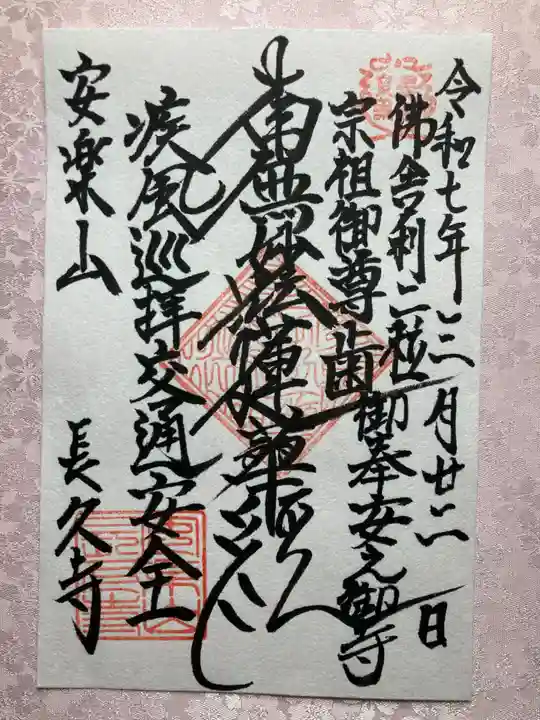 令和七年三月廿二日
佛舎利二粒御奉安之御寺
宗祖御尊歯
南無妙法蓮華経
疾風巡拝交通安全
安楽山 長久寺